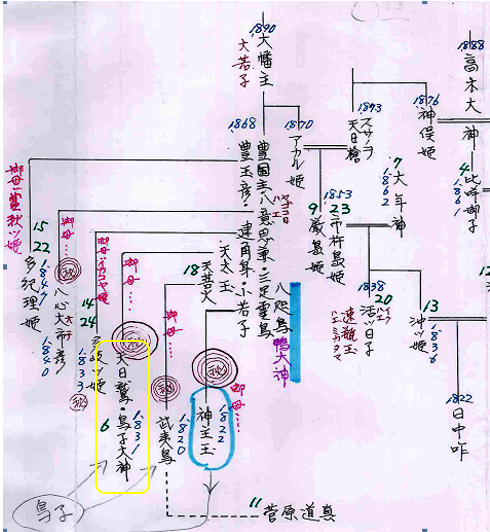 1888
高木大神
1876
神俣姫
1893
スサノヲ
天日槍
1890
大幡主
大若子
4
比咩御子
1861
7
大年神
1862
1870
アカル姫
1868
豊国主・八意思兼・三足烏
豊玉彦・建角身・小若子
八咫烏
鴨大神
1853
23
市杵島姫
9
厳島姫
13
沖ツ姫
1836
1838
20
活ツ日子
速瓶玉
1822
日中咋
天太玉
18
天菩火
1822
神主玉
1820
武夷鳥
11
菅原道真
天日鷲・鳥子大神
1831
6
14
24
多岐ツ姫
1833
八心大市彦
1840
15
22
多紀理姫
1847
御母…
御母…
御母…
御母…
御母・豊秋ツ姫
秘
秘
秘
鳥子